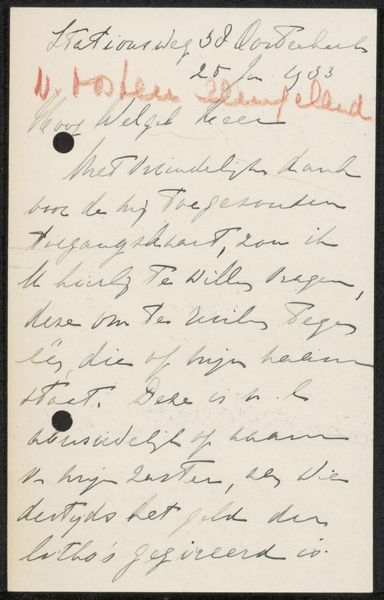 Stationsweg 38 Oosterbeek
25 Jan 1933
v. Oosten Slingeland
Hoog Welgeb Heer
Met vriendelijk dank
voor de mij toegezonden
toegangskaart, zou ik
U hierbij te willen vragen,
deze om te ruilen tegen
één, die op mijn naam
staat. Deze is n.l.
abusievelijk op naam
v mijn zuster, aan wie
destijds het geld der
litho's gegireerd is.